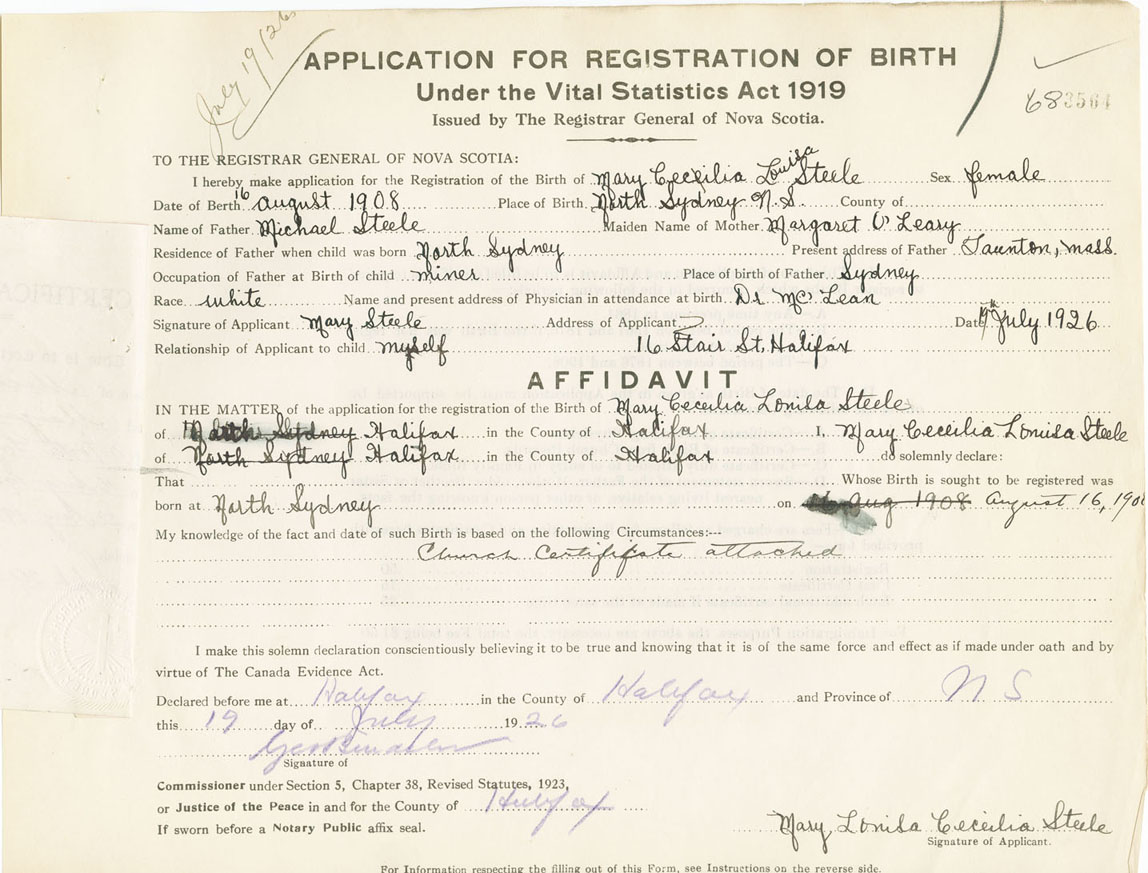 July 19/26
APPLICATION FOR REGISTRATION OF BIRTH
Under the Vital Statistics Act 1919
683564
Issued by The Registrar General of Nova Scotia.
TO THE REGISTRAR GENERAL OF NOVA SCOTIA:
I hereby make application for the Registration of the Birth of Mary Ceceilia Louisa Steele Sex female
Date of Berth 16 August 1908 Place of Birth North Sydney N.S. County of
Name of Father Michael Steele Maiden Name of Mother Margaret O'Leary
Residence of Father when child was born North Sydney Present address of Father Taunton, Mass.
Occupation of Father at Birth of child miner Place of birth of Father Sydney
Race white Name and present address of Physician in attendance at birth. Dr. McLean
Signature of Applicant Mary Steele Address of Applicant Date 19th July 1926
Relationship of Applicant to child myself 16 Stair St. Halifax
AFFIDAVIT
IN THE MATTER of the application for the registration of the Birth of Mary Ceceilia Louisa Steele
of North Sydney Halifax in the County of Halifax I, Mary Cecelia Louisa Steele
of North Sydney Halifax in the County of Halifax do solemnly declare:
That Whose Birth is sought to be registered was
born at North Sydney on Aug 1908 August 16, 190
My knowledge of the fact and date of such Birth is based on the following Circumstances:--
Church Certificate attached
I make this solemn declaration conscientiously believing it to be true and knowing that it is of the same force and effect as if made under oath and by
virtue of The Canada Evidence Act.
Declared before me at Halifax in the County of Halifax and Province of N S
this 19 day of July 1926
Signature of
Commissioner under Section 5, Chapter 38, Revised Statutes, 1923,
or Justice of the Peace in and for the County of Halifax
If sworn before a Notary Public affix seal.
Mary Louisa Ceceilia Steele
Signature of Applicant.
For Information respecting the filling out of this Form, see Instructions on the reverse side.